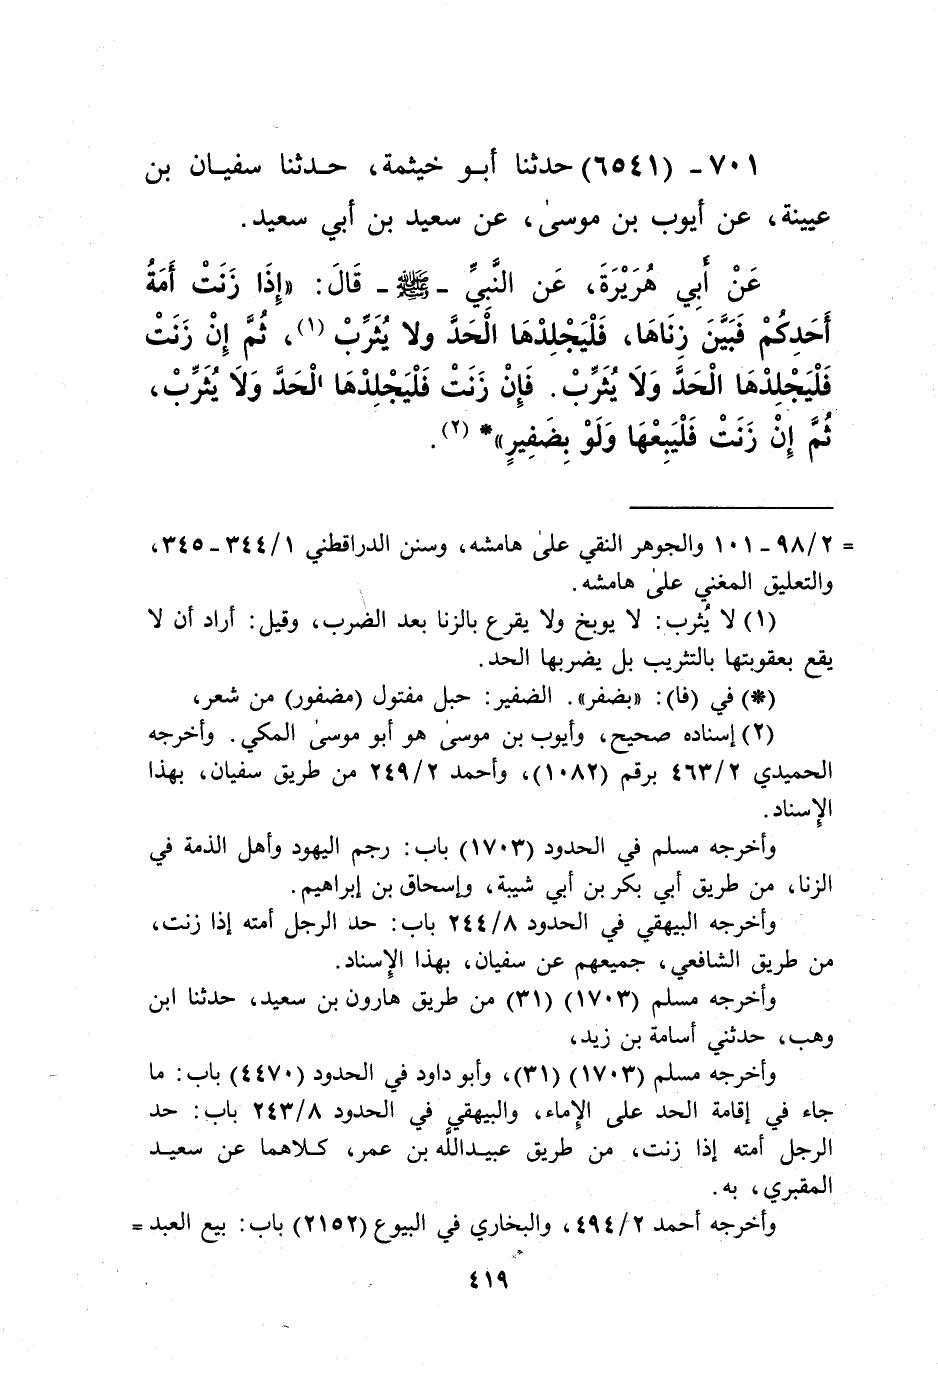 ٧٠١ - (٦٥٤١) حدثنا أبو خيثمة، حدثنا سفيان بن
عيينة، عن أيوب بن موسىٰ، عن سعيد بن أبي سعيد.
عَنْ أَبِي هُرَيْرَةَ، عَنِ النَّبِيِّ - ﷺ - قَالَ: «إِذَا زَنَتْ أَمَةُ
أَحَدِكُمْ فَبَيَّنَ زِنَاهَا، فَلْيَجْلِدْهَا الْحَدَّ ولا يُثَرِّبْ (١)، ثُمَّ إِنْ زَنَتْ
فَلْيَجْلِدْهَا الْحَدَّ وَلَا يُثَرِّبْ. فَإِنْ زَنَتْ فَلْيَجْلِدْهَا الْحَدَّ وَلَا يُثَرِّبْ،
ثُمَّ إِنْ زَنَتْ فَلْيَبِعْهَا وَلَوْ بِضَفِيرٍ»* (٢).
= ٩٨/٢ - ١٠١ والجوهر النقي علىٰ هامشه، وسنن الدراقطني ٣٤٤/١ - ٣٤٥،
والتعليق المغني علىٰ هامشه.
(١) لا يُثرب: لا يوبخ ولا يقرع بالزنا بعد الضرب، وقيل: أراد أن لا
يقع بعقوبتها بالتثريب بل يضربها الحد.
(*) في (فا): «بضفر». الضفير: حبل مفتول (مضفور) من شعر،
(٢) إسناده صحيح، وأيوب بن موسىٰ هو أبو موسىٰ المكي. وأخرجه
الحميدي ٤٦٣/٢ برقم (١٠٨٢)، وأحمد ٢٤٩/٢ من طريق سفيان، بهذا
الإسناد.
وأخرجه مسلم في الحدود (١٧٠٣) باب: رجم اليهود وأهل الذمة في
الزنا، من طريق أبي بكر بن أبي شيبة، وإسحاق بن إبراهيم.
وأخرجه البيهقي في الحدود ٢٤٤/٨ باب: حد الرجل أمته إذا زنت،
من طريق الشافعي، جميعهم عن سفيان، بهذا الإسناد.
وأخرجه مسلم (١٧٠٣) (٣١) من طريق هارون بن سعيد، حدثنا ابن
وهب، حدثني أسامة بن زيد،
وأخرجه مسلم (١٧٠٣) (٣١)، وأبو داود في الحدود (٤٤٧٠) باب: ما
جاء في إقامة الحد على الإماء، والبيهقي في الحدود ٢٤٣/٨ باب: حد
الرجل أمته إذا زنت، من طريق عبيدالله بن عمر، كلاهما عن سعيد
المقبري، به.
وأخرجه أحمد ٤٩٤/٢، والبخاري في البيوع (٢١٥٢) باب: بيع العبد =
٤١٩